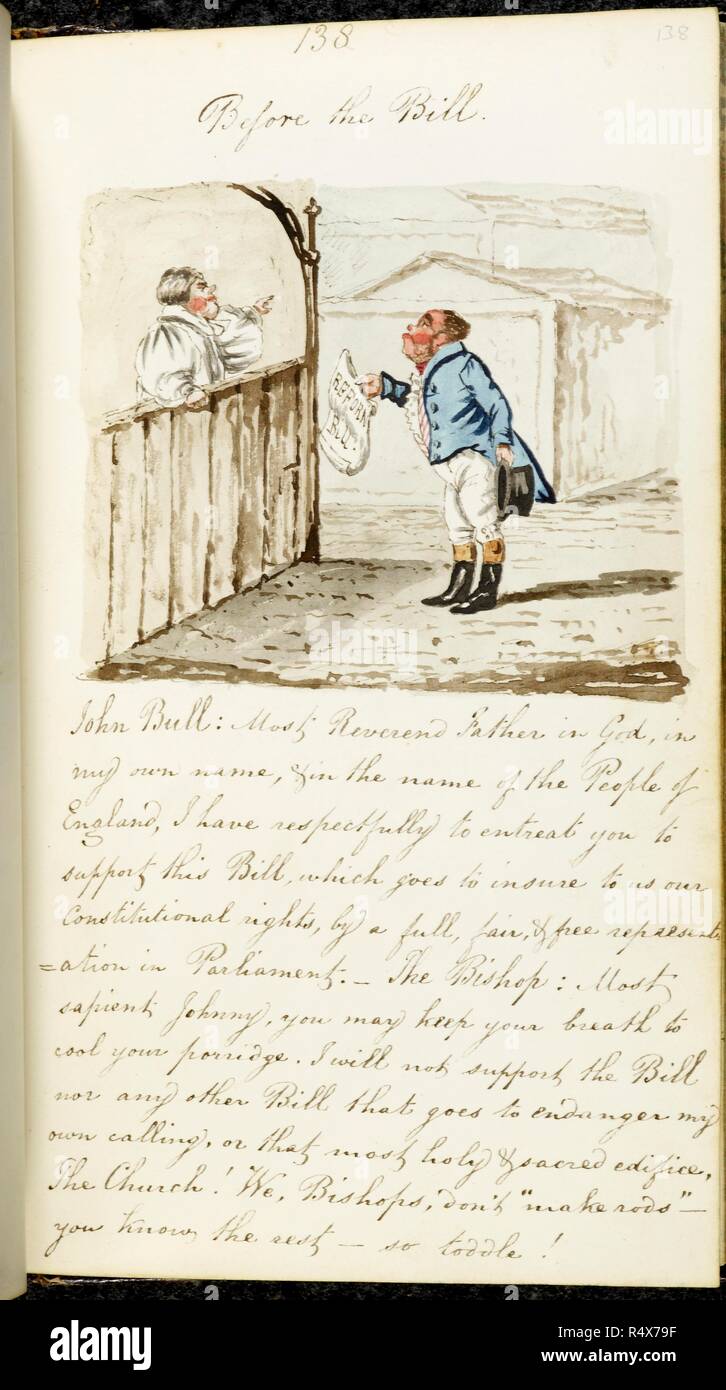 138
138
Before the Bill.
REFORM
BILL.
John Bull: Most Reverend Father in God, in
my own name, & in the name of the People of
England, I have respectfully to entreat you to
support this Bill, which goes to insure to us our
Constitutional rights, by a full, fair, & free represent
=ation in Parliament. _ The Bishop: Most
sapient Johnny, you may keep your breath to
cool your porridge. I will not support the Bill
nor any other Bill that goes to endanger my
own calling, or that most holy & sacred edifice,
The Church! We, Bishops, don't "make rods" _
you know the rest _ so toddle!
alamy
alamy
alamy
Image ID: R4X79F
www.alamy.com